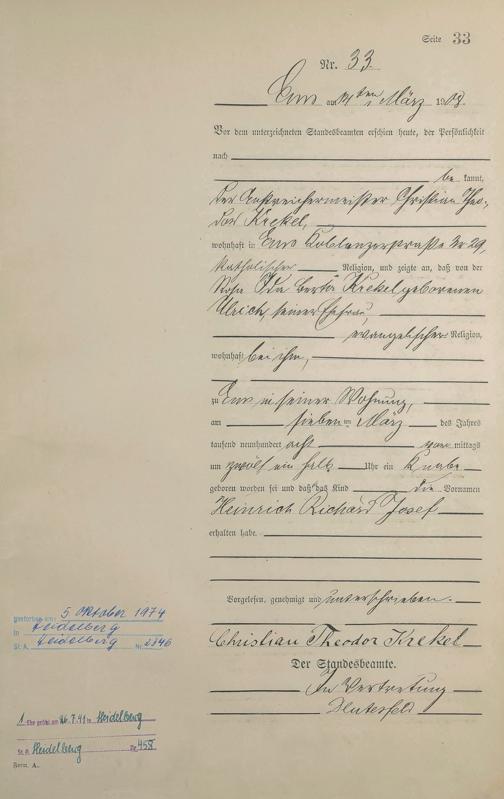 Seite 33
Nr. 33
Ems am 14ten März 1908.
Vor dem unterzeichneten Standesbeamten erschien heute, der Persönlichkeit
nach
be kannt,
der Anstreichermeister Christian Theo-
dor Krekel,
wohnhaft in Ems Koblenzerstraße Nr 29,
katholischer Religion, und zeigte an, daß von der
Rosa Ida Berta Krekel geborenen
Ulrich, seiner Ehefrau,
evangelischer Religion,
wohnhaft bei ihm,
zu Ems in seiner Wohnung,
am sieben ten März des Jahres
tausend neunhundert acht mittags
um zwölf ein halb Uhr ein Knabe
geboren worden sei und daß das Kind die Vornamen
Heinrich Richard Josef
erhalten habe.
Vorgelesen, genehmigt und unterschrieben.
Christian Theodor Krekel
Der Standesbeamte.
In Vertretung
gestorben am: 5 Oktober 1974
in Heidelberg
St. A. Heidelberg Nr. 2346
1. Ehe geschl. am 26.7.41 in Heidelberg
St. A. Heidelberg Nr. 458
Form. A.